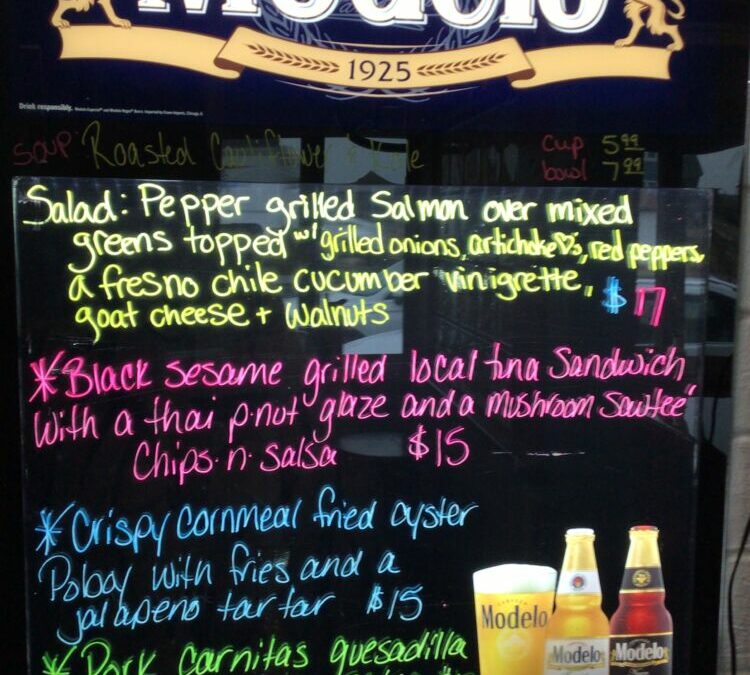 Modelo
1925
Drink responsibly.
Soup Roasted Cauliflower & Kale cup 5.99
bowl 7.99
Salad: Pepper grilled Salmon over mixed
greens topped w/ grilled onions, artichoke ♡'s, red peppers,
a fresno chile cucumber vinigrette, $17
goat cheese + walnuts
*Black sesame grilled local tuna Sandwich
with a thai p.nut glaze and a Mushroom Sautee"
Chips.n.salsa $15
*Crispy cornmeal fried oyster
Poboy with fries and a
jalapeno tartar $15
*Pork carnitas quesadilla
Modelo
Modelo
Modelo